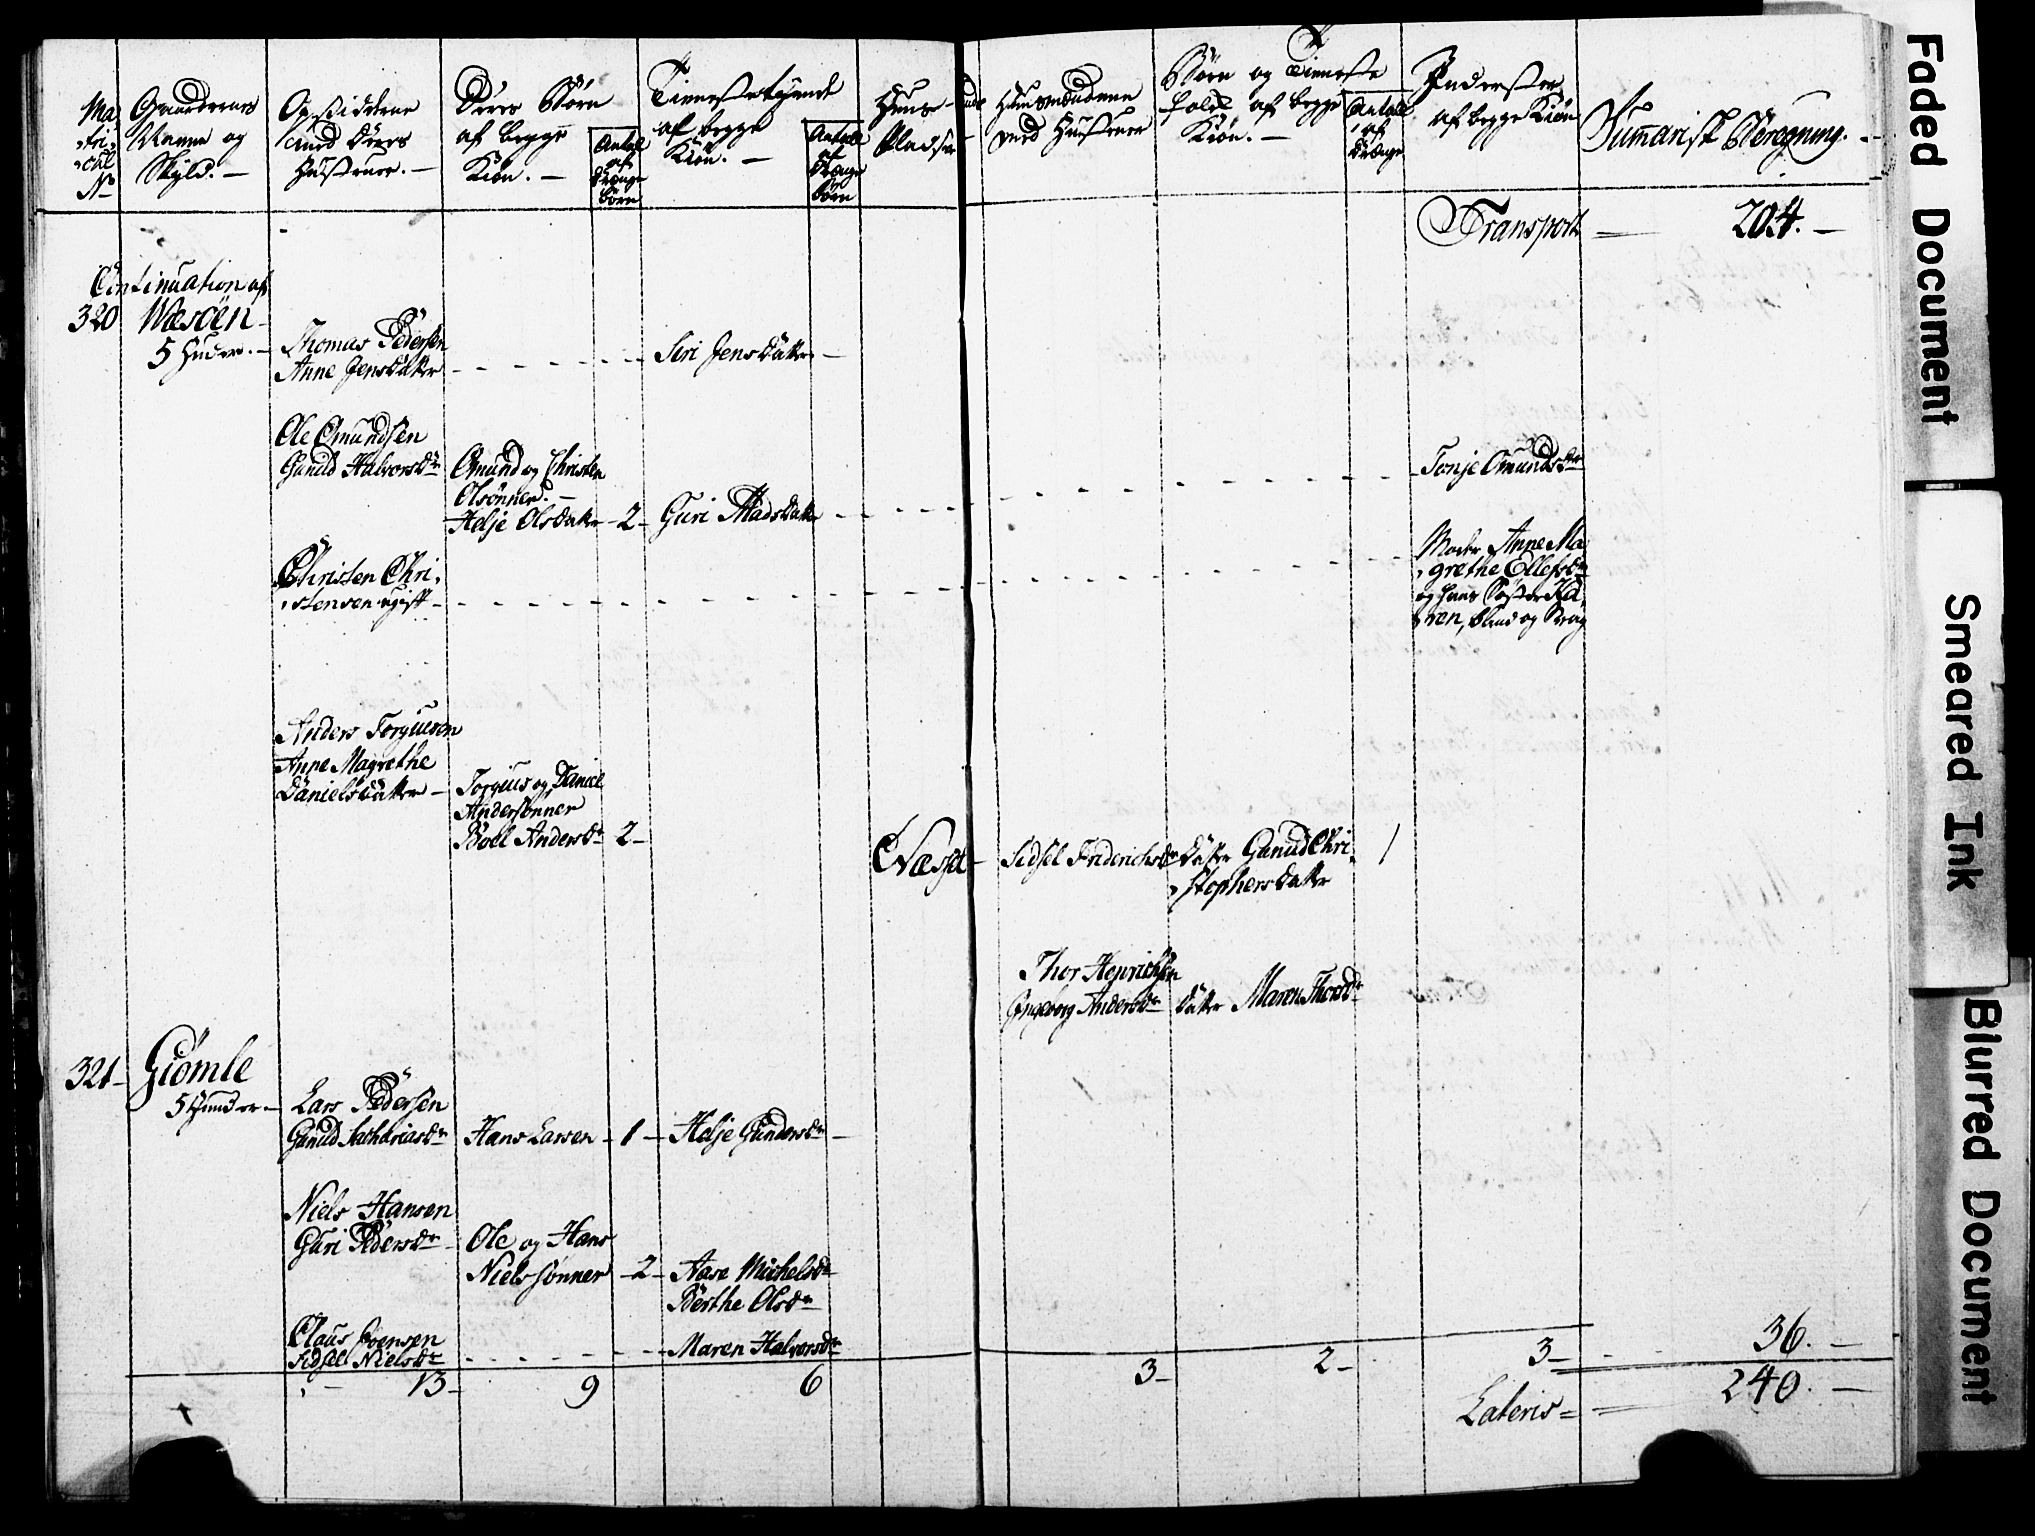 Ma,
,tri,
,cul
No
Gaardernes
Nafne og
Skyld. —
Opsiddere
med Deres
Hustruer. —
Deres Børn
af begge
Kiøn. —
Antal
af
Drænge
Børn
Tienestetyende
af begge
Kiøn. —
Antal
af
Drænge
Børn
Huus-
Pladser
Huusmændene
med Hustruer
Børn og Tieneste
folk af begge
Kiøn. —
Antal
af
Drænge
Inderster
af begge Kiøn
Sumarisk Beregning. —
Transport — 204. —
Continuation af
320 Wæsøen —
5 Huder. —
Thomas Pedersen
Anne Jensdatter
Siri Jensdatter —
Ole Omundsen
Gunild Halvorsdr
Omund og Christen
Olsønner. —
Helje Olsdatter — 2 —
Guri Madsdatter
Tonje Omundsdr
Christen Chri,
,stensen ugift —
Moder Anne Ma
,grethe Ellefsdr
og hans Søster Ka,
,ren, blind og Svag
Anders Torgiusen
Anne Magrethe
Danielsdatter —
Torgius og Daniel
Andersønner
Boel Andersdr 2 —
Næsset —
Sidsel Friderichsdr
datter Gunild Chri,
,stophersdatter
1
Thor Henrichsen
Ingeborg Andersdr
datter Maren Thorsdr
321 — Giømle
5 Huder —
Lars Pedersen
Gunild Sachariasdr
Hans Larsen — 1 —
Helje Gundersdr —
Niels Hansen
Guri Pedersdr
Ole og Hans
Nielssønner — 2 —
Aase Michelsdr
Berthe Olsdr
Claus Svensen
Sidsel Nielsdr
Maren Halvorsdr
13 — 9 6 3 — 2 — 3 — 36. —
Lateris = 240. —
Faded Document
Smeared Ink
Blurred Document